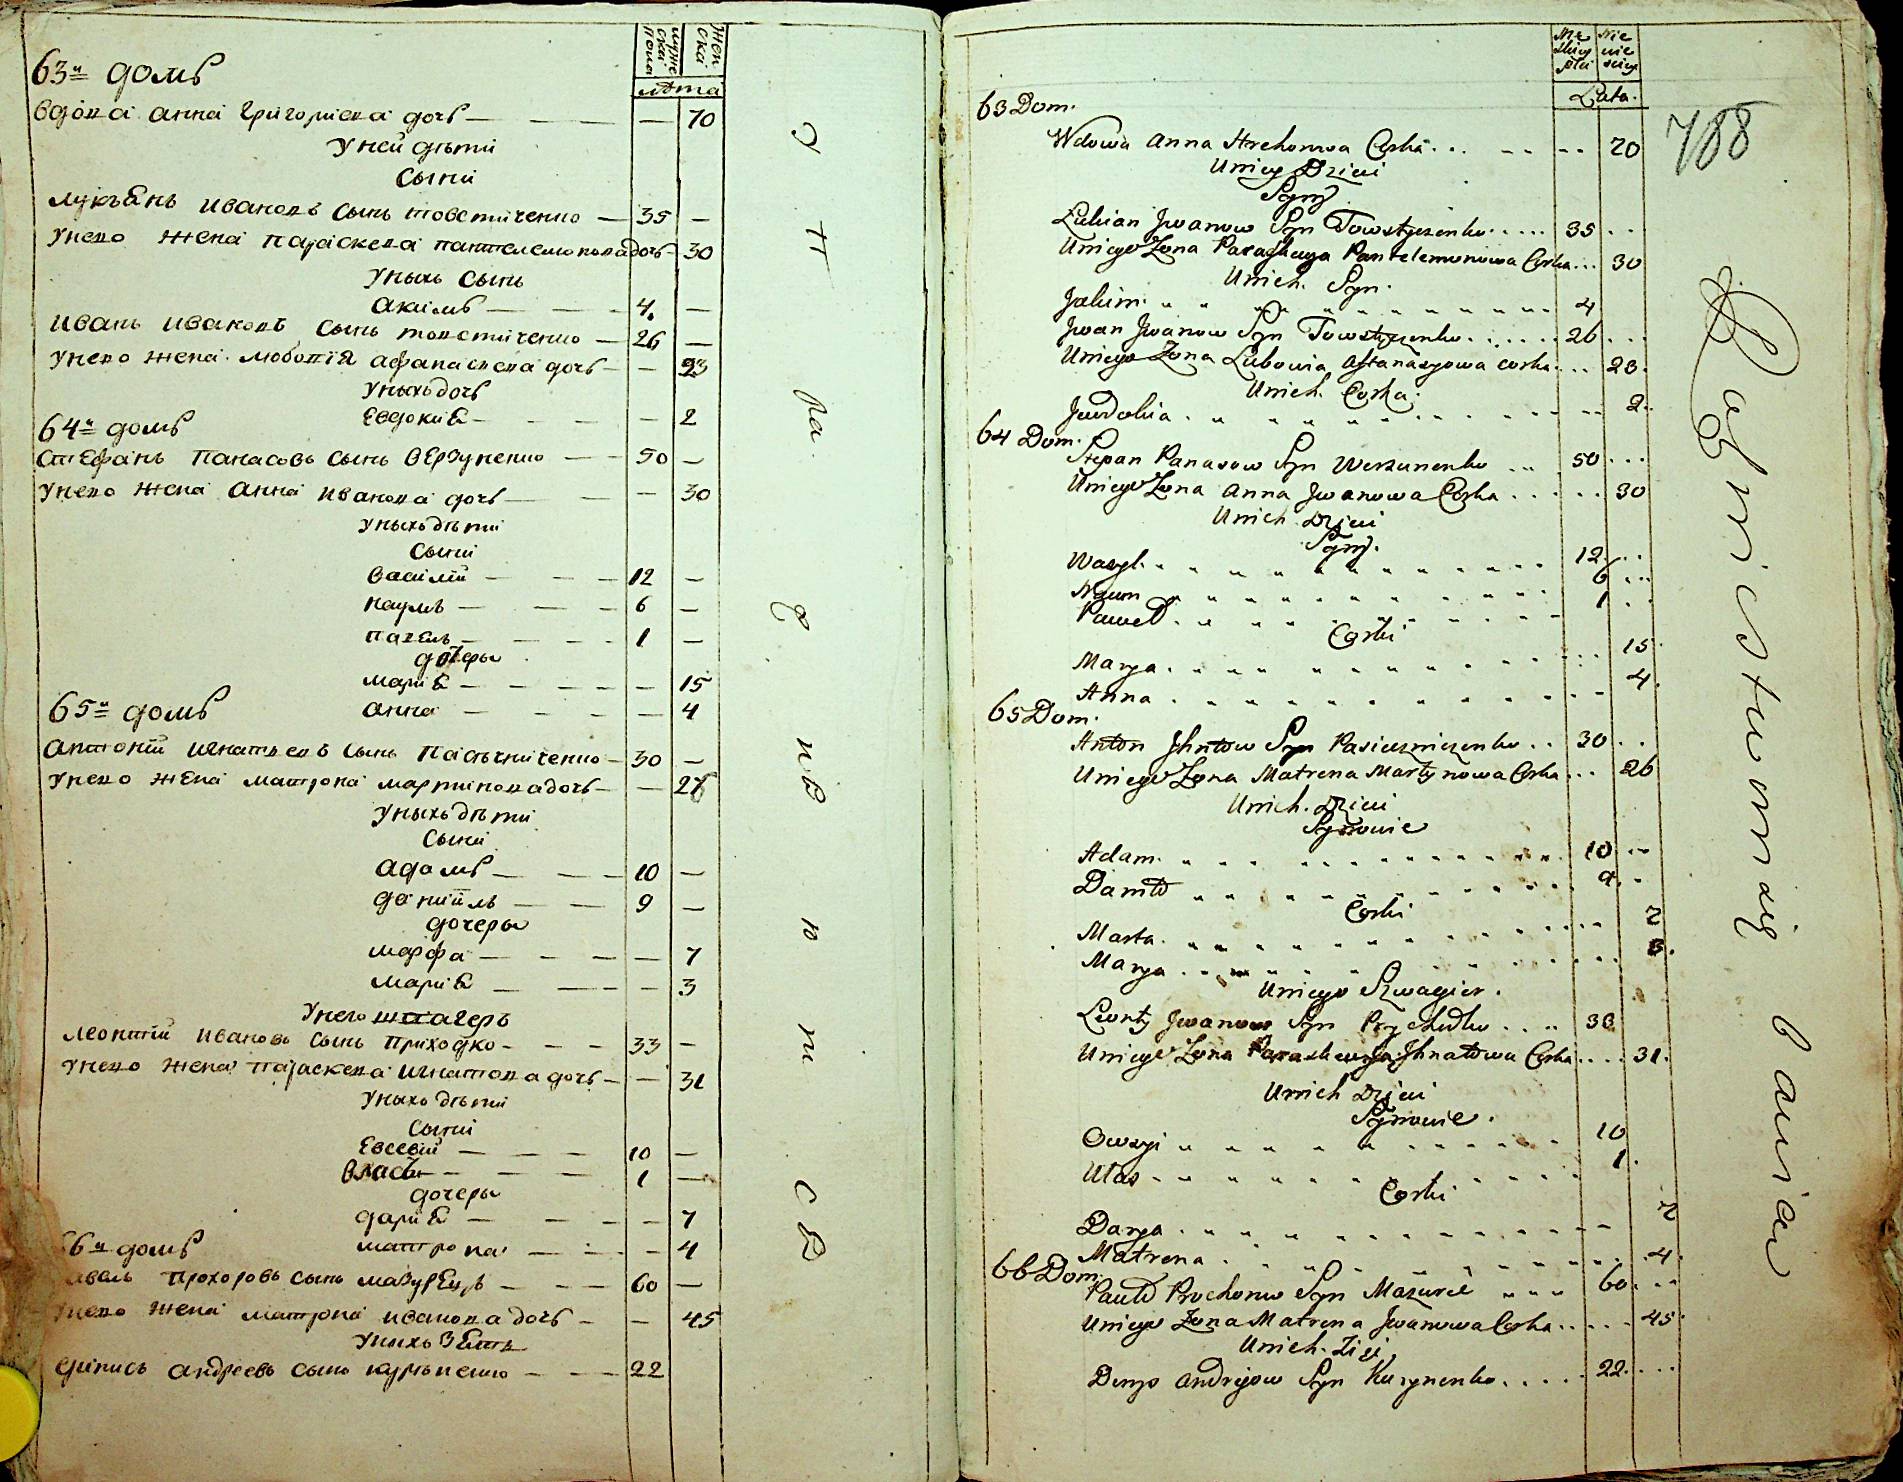 мужеска пола
женска
лѣта
63й домъ
вдова анна григориева дочь — — — — 70
унеи дѣти
сыни
лукъянъ ивановъ сынъ товстиченко — 35 —
унево жена параскева пантелемонова дочь — 30
уныхъ сынъ
акимъ — — — 4 —
иванъ ивановъ сынъ товстиченко — 26 —
унево жена любовія афанасиева дочь — — 23
уныхъ дочь
Евдокия — — — — 2
64й домъ
стефанъ панасовъ сынъ верзуненко — — 50 —
унево жена анна иванова дочь — — — 30
уныхъ дѣти
сыни
василий — — — 12 —
наумъ — — — 6 —
павелъ — — — 1 —
дочеры
мария — — — — — 15
анна — — — — 4
65й домъ
антоний игнатиевъ сынъ пасѣчниченко — 30 —
унево жена матрона мартинова дочь — — 26
уныхъ дѣти
сыни
адамъ — — — 10 —
даниилъ — — 9 —
дочеры
марфа — — — — 7
мария — — — — 3
унего швагеръ
леонтий ивановъ сынъ приходко — — — 33 —
унево жена параскева игнатова дочь — — 31
уныхъ дѣти
сыни
Евсевий — — — 10 —
власъ — — — 1 —
дочеры
дария — — — — 7
матрона — — — 4
66й домъ
павелъ прохоровъ сынъ мазурецъ — — — 60 —
унево жена матрона иванова дочь — — 45
уныхъ зять
денисъ андреевъ сынъ курыненко — — — 22
Męskiey płci
Niewieściey
Lata.
788
63 Dom.
Wdowa Anna Hrehorowa Corka . . . 70
Uniey Dzieci
Syny
Łukian Jwanow Syn Towstyczenko . . . . . 35 . .
Uniego Żona Paraskewya Pantelemonowa Corka . . . 30
Unich. Syn.
Jakim. . . . . 4
Jwan Jwanow Syn Towstyczenko . . . . . . 26 . . .
Uniego Żona Lubowia Aftanasyowa corka . . . 23.
Unich. Corka.
Jewdokia . . . . . 2.
64 Dom.
Stepan Panasow Syn Werzunenko . . . 50 . . .
Uniego Żona Anna Jwanowa Corka . . . . . 30
Unich. Dzieci
Syny.
Wasyl . . . . . 12 . . .
Naum . . . . . 6 . . .
Paweł . . . . . 1 . .
Corki
Marya . . . . . 15.
Anna . . . . . 4.
65 Dom.
Anton Jhntow Syn Pasieczniczenko . . 30 . .
Uniego Żona Matrena Martynowa Corka . . . 26
Unich. Dzieci
Synowie
Adam . . . . . 10 . .
Daniło . . . . . 9 . .
Corki
Marta . . . . . 7
Marya . . . . . 3.
Uniego Szwagier.
Leonty Jwanow Syn Prychodko . . . . 33
Uniego Żona Paraskewya Jhnatowa Corka . . . . 31.
Unich Dzieci
Synowie.
Owsyi . . . . . 10
Ułas . . . . . 1.
Corki
Darya . . . . . 7
Matrena . . . . . 4.
66 Dom.
Pawło Prochorow Syn Mazurec . . . 60 . . .
Uniego Żona Matrena Jwanowa Corka . . . . . 45.
Unich. Zięć
Denys Andrijow Syn Kurynenko . . . . . 22. . . .